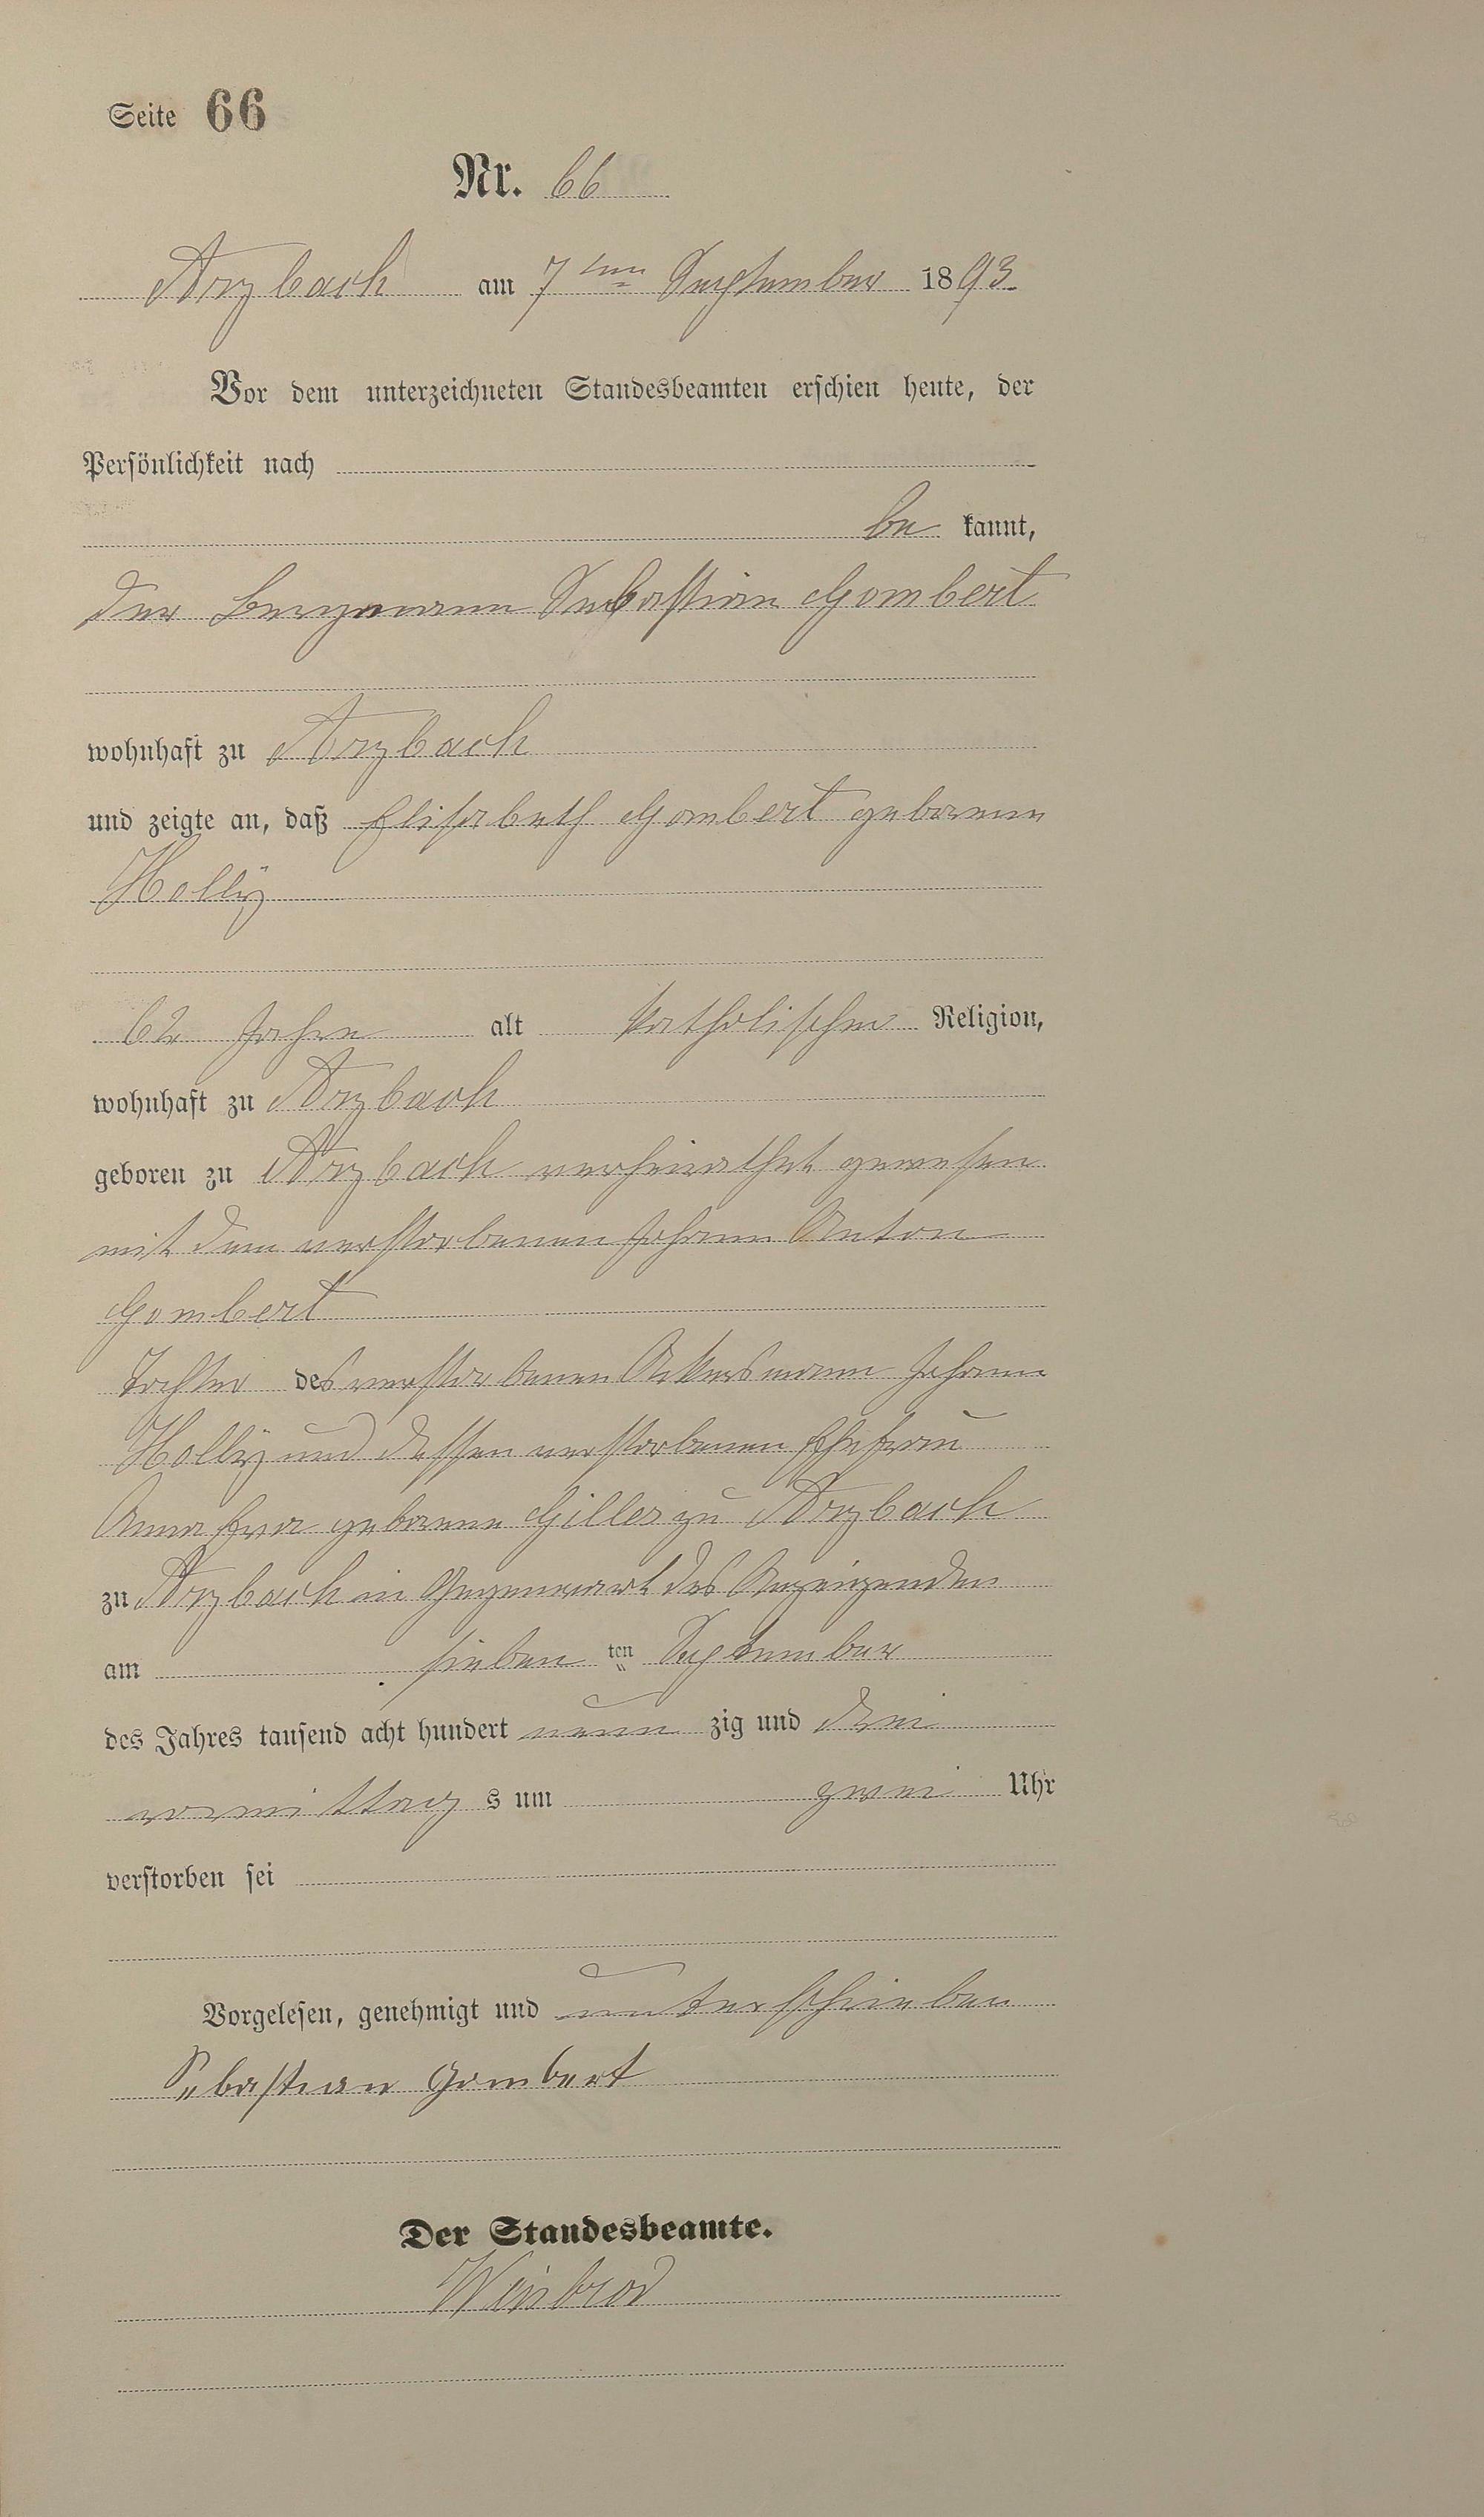 Seite 66
Nr. 66
Arzbach am 7ten September 1893.
Vor dem unterzeichneten Standesbeamten erschien heute, der
Persönlichkeit nach
be kannt,
der Bergmann Sebastian Gombert
wohnhaft zu Arzbach
und zeigte an, daß Elisabeth Gombert geborene
Hollÿ
62 Jahre alt katholischer Religion,
wohnhaft zu Arzbach
geboren zu Arzbach verheirathet gewesen
mit dem verstorbenen Johann Anton
Gombert
Tochter des verstorbenen Ackersmann Johann
Hollÿ und dessen verstorbenen Ehefrau
Anna Eva geborene Gilles zu Arzbach
zu Arzbach in Gegenwart des Anzeigenden
am sieben ten September
des Jahres tausend acht hundert neun zig und drei
vormittag s um zwei Uhr
verstorben sei
Vorgelesen, genehmigt und unterschrieben
Sebastian Gombert
Der Standesbeamte.
Weisbrod